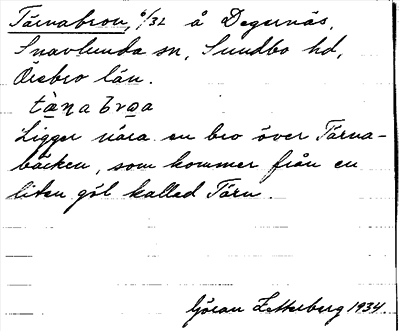 Tärnabron, 6/32 å Degernäs,
Snavlunda sn, Sundbo hd,
Örebro län.
Ligger nära en bro över Tärna-
bäcken, som kommer från en
liten göl kallad Tärn.
Göran Zetterberg 1934.